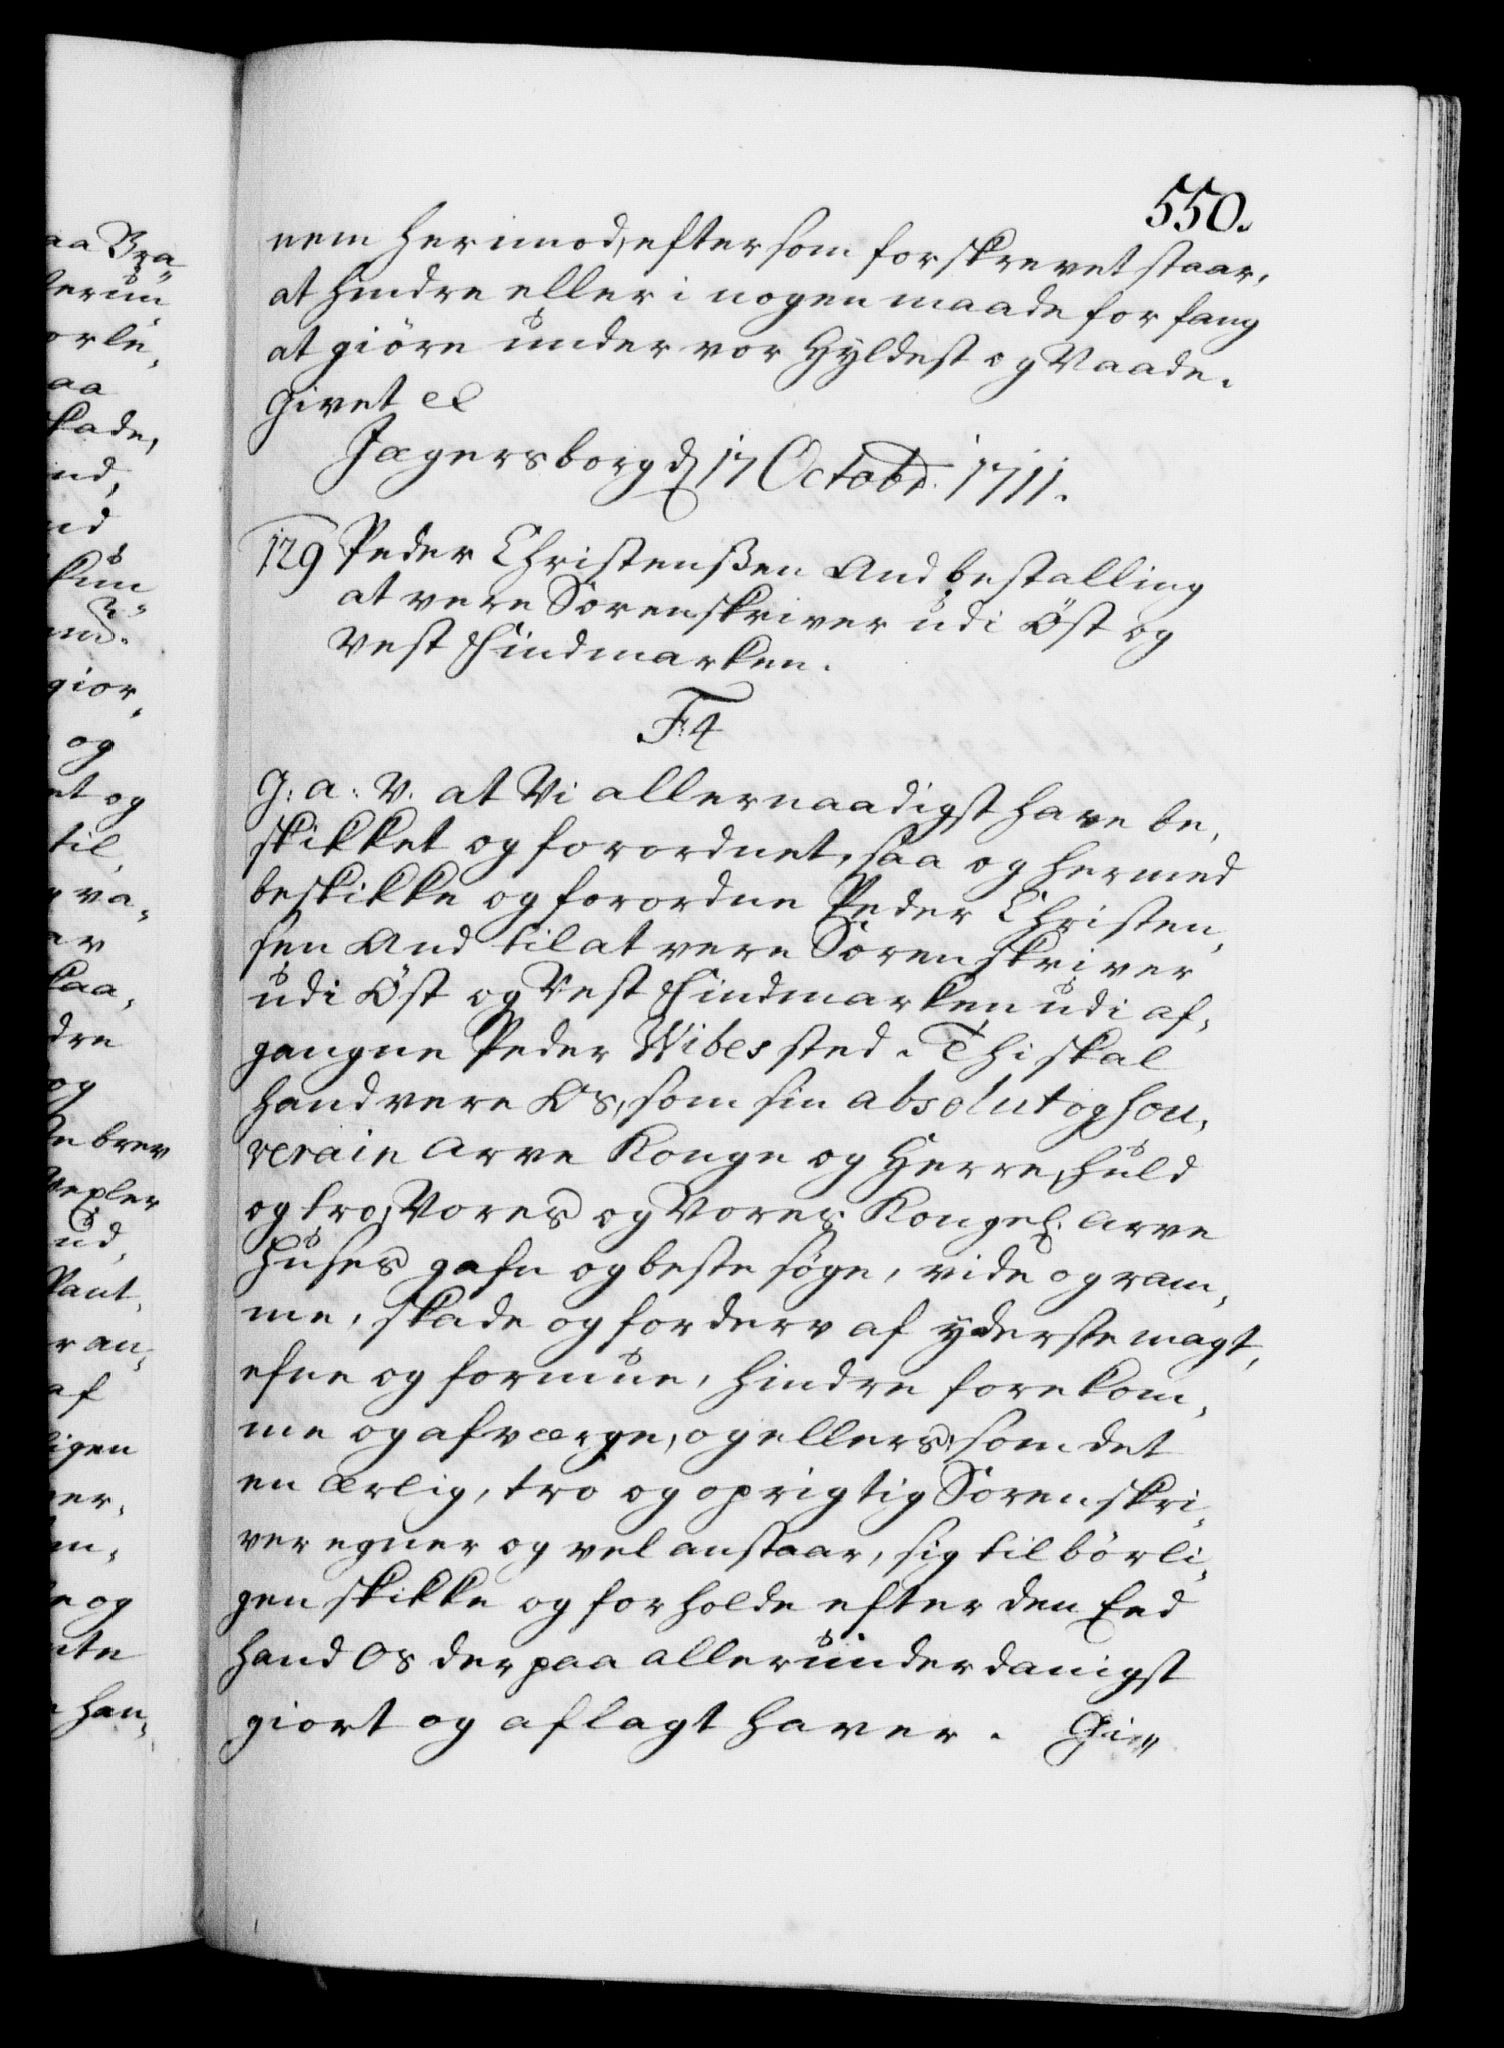 550.
nem herimod, eftersom forskrevet staar,
at hindre eller i nogen maade forfang
at giöre under vor Hyldest og Naade.
Givet &c
Jægersborg d 17 Octobr. 1711.
129 Peder Christenßen And bestalling
at vere Sorenskriver udi Öst og
Vest Findmarken.
F:4
G: a: V. at Vi allernaadigst have be,
skikket og forordnet, saa og hermed
beskikke og forordne Peder Christen,
sen And til at vere Sorenskriver
udi Öst og Vest Findmarken udi af,
gangne Peder Wibes sted. Thi skal
hand vere Os, som sin absolut og sou,
verain Arve Konge og Herre, huld
og tro, Vores og Vores Kongel. Arve
Huses gafn og beste søge, vide og ram,
me, skade og forderv af yderste magt,
efne og formue, hindre forekom,
me og afværge, og ellers, som det
en ærlig, tro og oprigtig Sorenskri,
ver egner og vel anstaar, sig tilbörli,
gen skikke og forholde efter den Eed
hand Os derpaa allerunderdanigst
giort og aflagt haver. Gi„
aa Bra„
derun„
orle„
aa
skade,
ind,
nd
kun
giör„
og
et og
til
va„
er
skaa,
dre
og
brev
ud,
Pant,
r an„
af
ligen
ver,
en,
e og
ste
han„